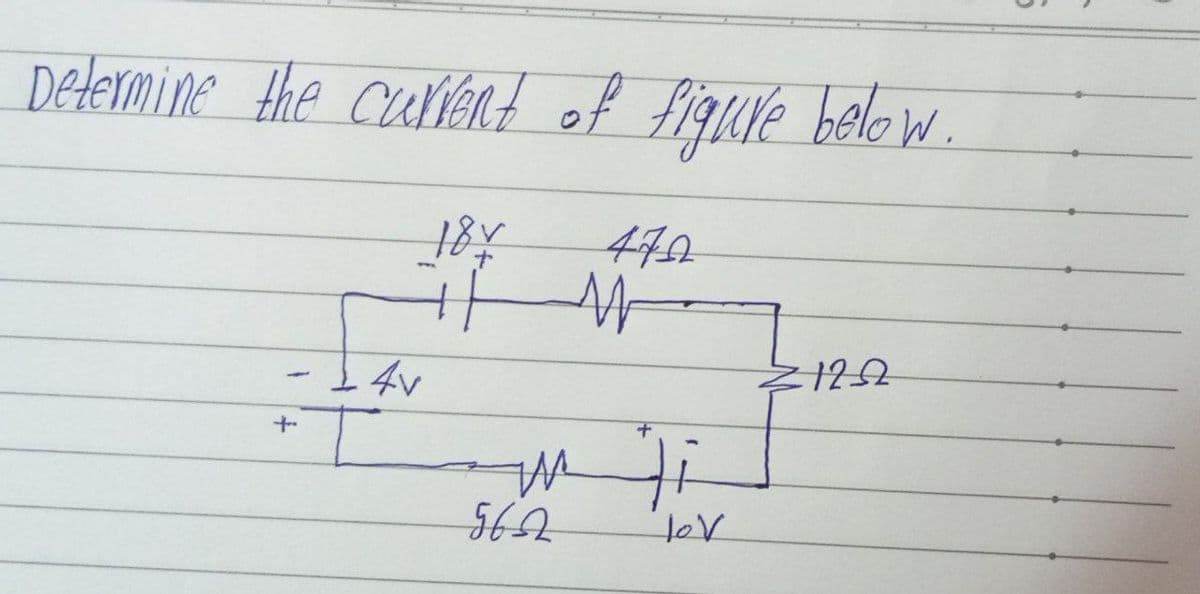 Determine the current of figure below.
18V 47Ω
- +
- 4V 12Ω
+ + -
56Ω 10V